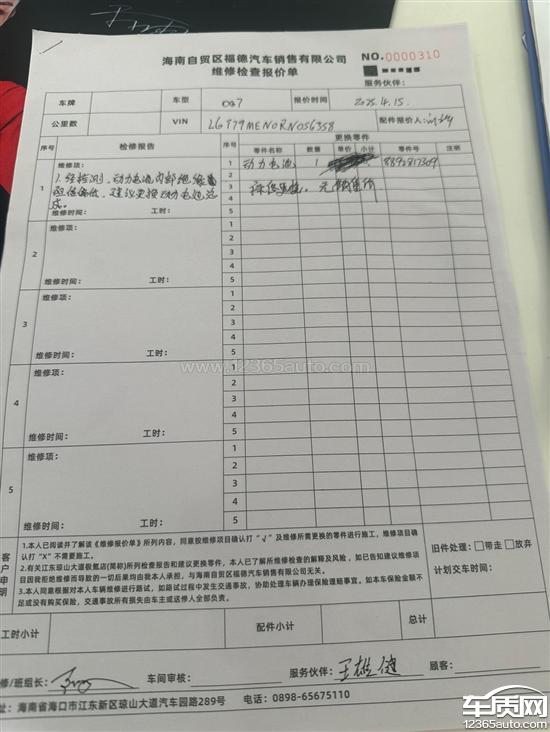 海南自贸区福德汽车销售有限公司
NO.0000310
维修检查报价单
服务伙伴:
车牌 车型 007 报价时间 2025.4.15.
公里数 VIN 配件报价人:
序号 检修报告 更换零件
序号 零件名称 数量 单价 小计 零件号 注明
1 维修项: 1 动力电池 1 8895817309
1.经检测,动力电池内部绝缘 2
阻值偏低,建议更换动力电池总 3 无销售价
成。 4
维修时间: 工时: 5
2 维修项: 1
2
3
4
维修时间: 工时: 5
3 维修项: 1
2
3
4
维修时间: 工时: 5
4 维修项: 1
2
3
4
维修时间: 工时: 5
5 维修项: 1
2
3
4
维修时间: 工时: 5
www.12365auto.com
客户申明
1.本人已阅读并了解该《维修报价单》所列内容,同意按维修项目确认打“√”及维修所需更换的零件进行施工,维修项目确
认打“X”不需要施工。
2.有关江东琼山大道极氪店(简称)所列检查报告和建议更换零件,本人已了解所维修检查的解释及风险,如已告知建议维修项
目因我拒绝维修而导致的一切后果均由我本人承担,与海南自贸区福德汽车销售有限公司无关。
3.本人同意根据对本人车辆维修进行路试,如路试过程中发生交通事故,协助处理车辆办理保险理赔事宜。如本车保险金额不
足或没有购买保险,交通事故所有损失由车主或送修人全部负责。
旧件处理: 带走 放弃
计划交车时间:
工时小计 配件小计 总计
修/班组长: 车间审核: 服务伙伴: 王雄健 顾客:
址:海南省海口市江东新区琼山大道汽车园路289号 电话:0898-65675110
车质网
12365auto.com